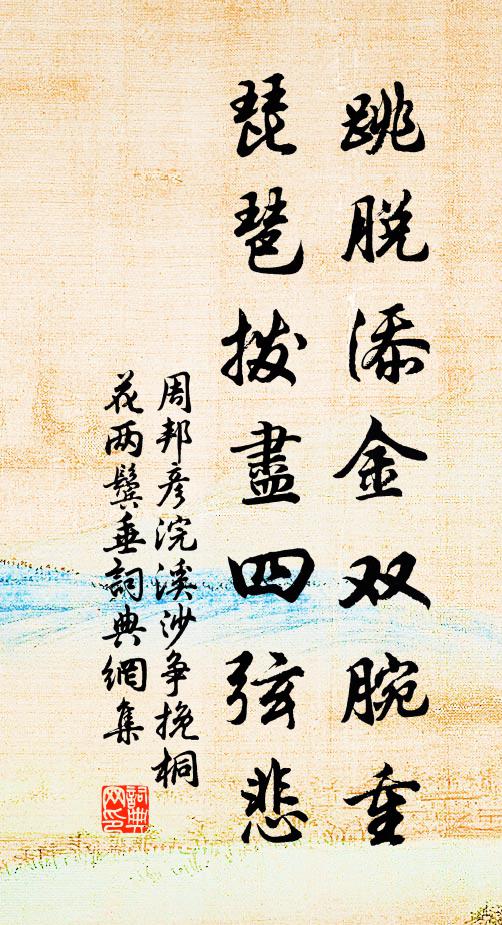 跳脱添金双腕重
琵琶拨盡四弦悲
周邦彦浣溪沙争挽桐
花两鬓垂詞典網集
詞典
网印